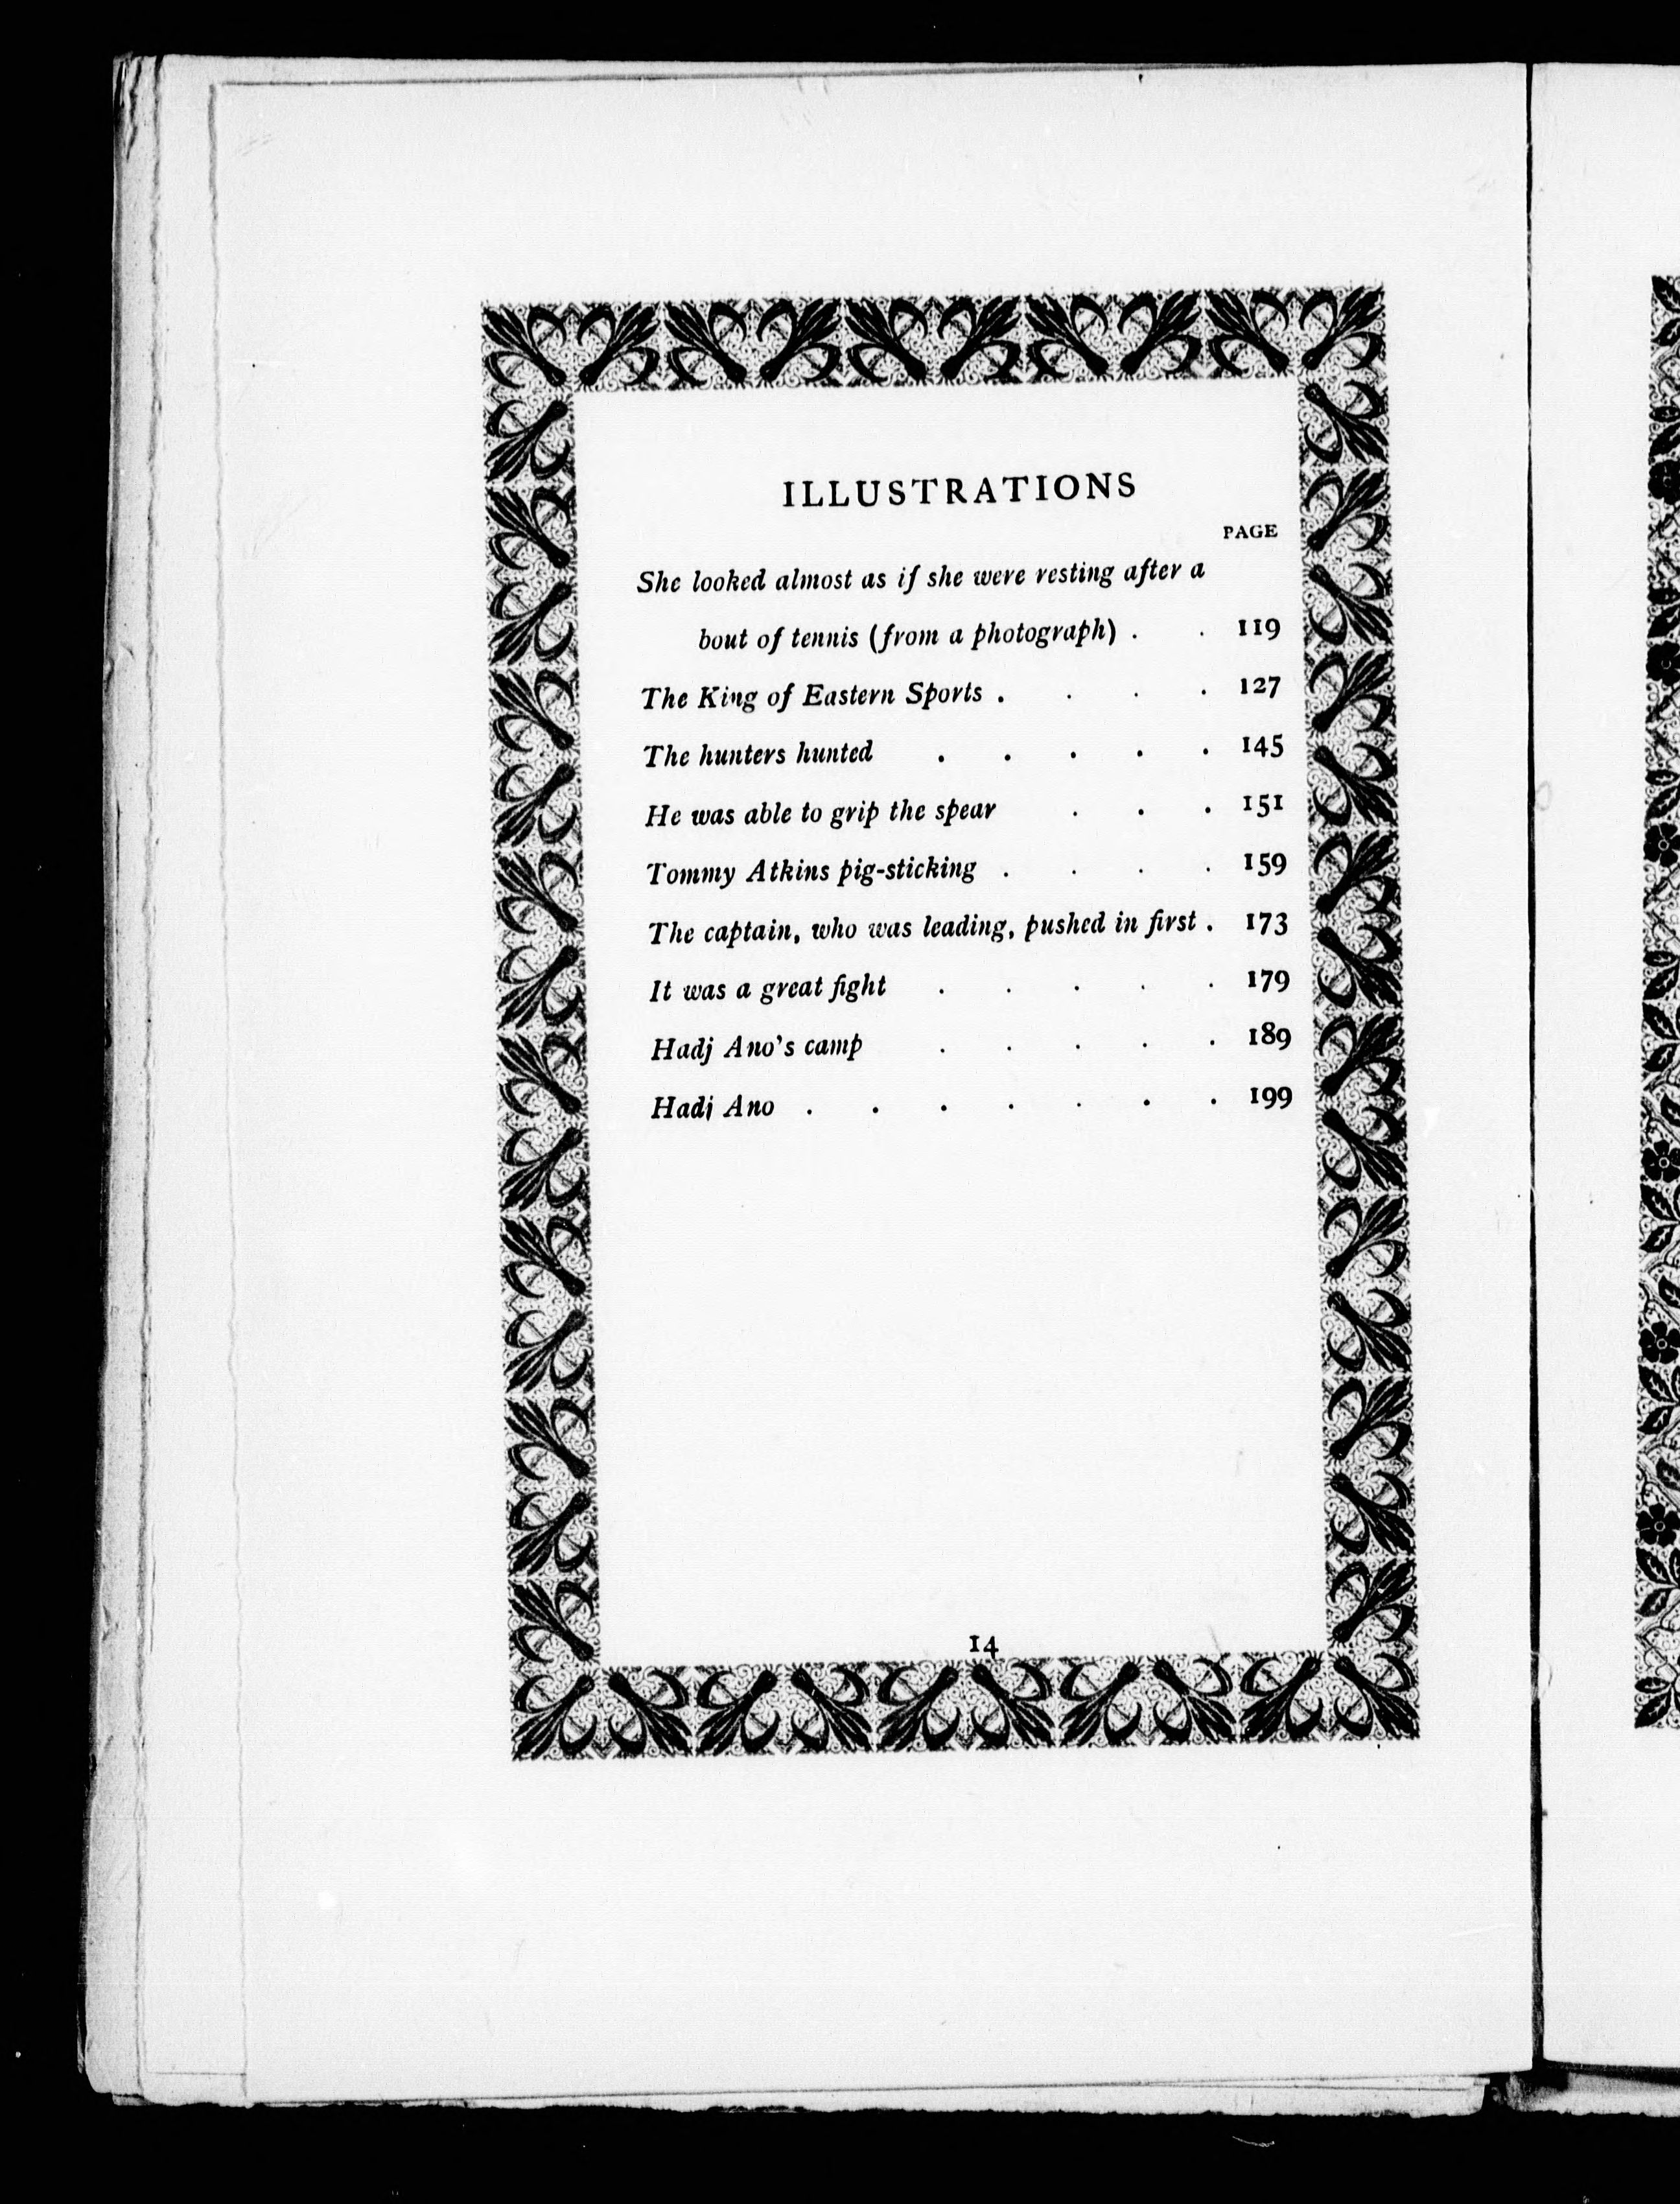 ILLUSTRATIONS
PAGE
She looked almost as if she were resting after a
bout of tennis (from a photograph) . . 119
The King of Eastern Sports . . . . 127
The hunters hunted . . . . . 145
He was able to grip the spear . . . 151
Tommy Atkins pig-sticking . . . . 159
The captain, who was leading, pushed in first . 173
It was a great fight . . . . . 179
Hadj Ano's camp . . . . . 189
Hadj Ano . . . . . . . 199
14